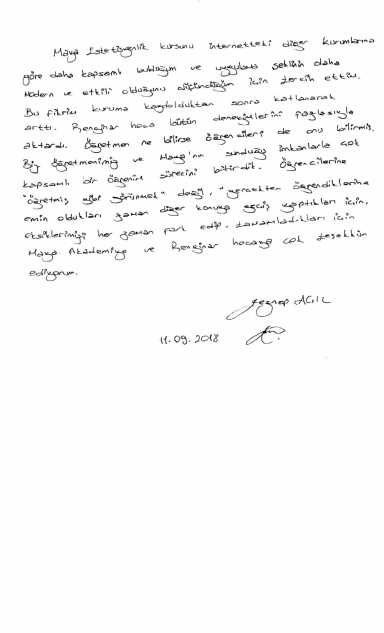 Maya Estetisyenlik kursunu internetteki diğer kurumlarına
göre daha kapsamlı bulduğum ve uygulama şeklinin daha
modern ve etkili olduğunu düşündüğüm için tercih ettim.
Bu fikrim kuruma kaydolduktan sonra katlanarak
arttı. hoca bütün deneyimlerini fazlasıyla
aktardı. Öğretmen ne bilirse öğrencileri de onu bilirmiş.
Biz öğretmenimiz ve Maya'nın sunduğu imkanlarla çok
kapsamlı bir öğrenim sürecini bitirdik. Öğrencilerine
"öğretmiş gibi görünmek" değil, "gerçekten öğrendiklerine
emin oldukları zaman diğer konuya geçiş yaptıkları için,
eksiklerimizi her zaman fark edip, tamamladıkları için
Maya Akademiye ve hocaya çok teşekkür
ediyorum.
Zeynep AÇIL
11.09.2018